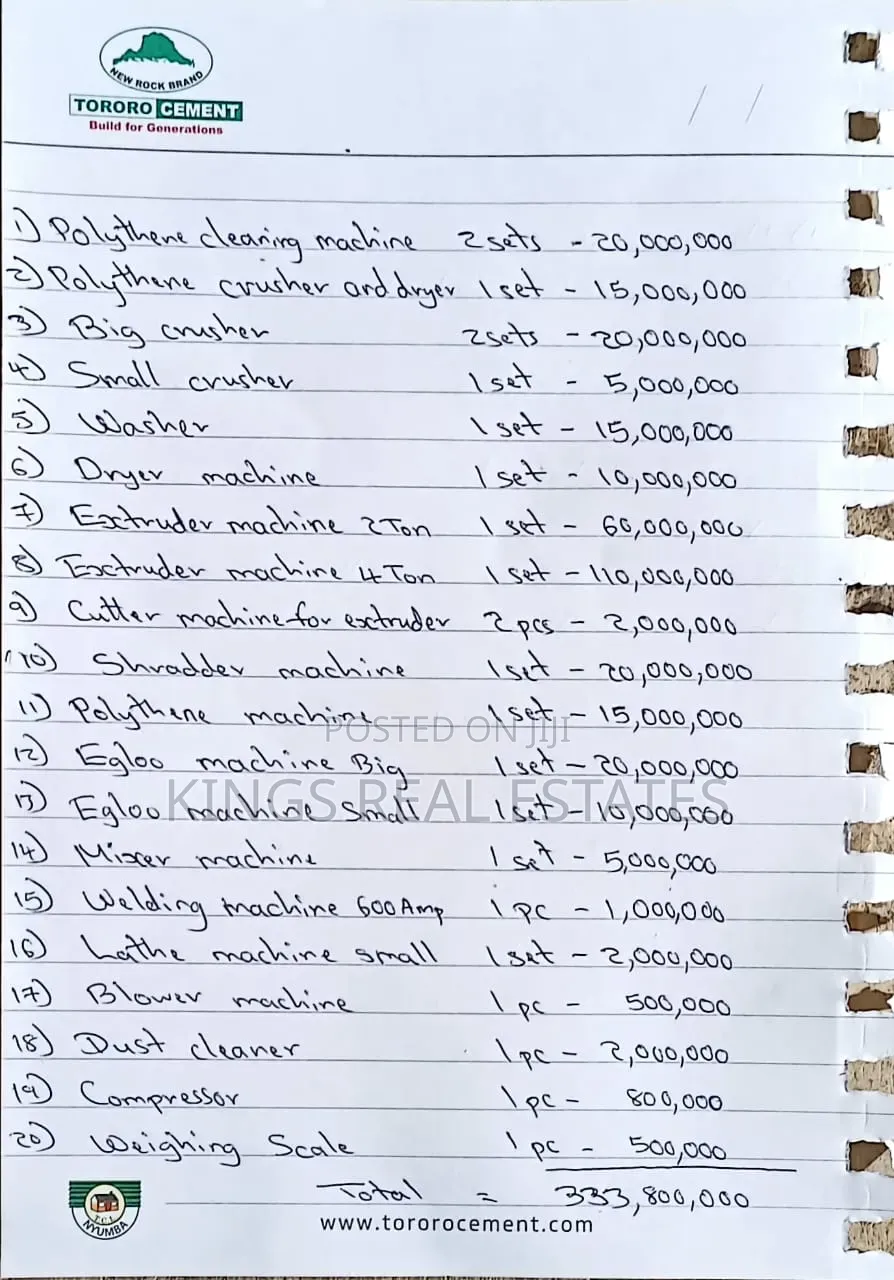 NEW ROCK BRAND
TORORO CEMENT
Build for Generations
/ /
1) Polythene cleaning machine 2 sets - 20,000,000
2) Polythene crusher and dryer 1 set - 15,000,000
3) Big crusher 2 sets - 20,000,000
4) Small crusher 1 set - 5,000,000
5) Washer 1 set - 15,000,000
6) Dryer machine 1 set - 10,000,000
7) Extruder machine 2 Ton 1 set - 60,000,000
8) Extruder machine 4 Ton 1 set - 110,000,000
9) Cutter machine for extruder 2 pcs - 2,000,000
10) Shradder machine 1 set - 20,000,000
11) Polythene machine 1 set - 15,000,000
POSTED ON JIJI
12) Egloo machine Big 1 set - 20,000,000
KINGS REAL ESTATES
13) Egloo machine Small 1 set - 10,000,000
14) Mixer machine 1 set - 5,000,000
15) Welding machine 600 Amp 1 pc - 1,000,000
16) Lathe machine small 1 set - 2,000,000
17) Blower machine 1 pc - 500,000
18) Dust cleaner 1 pc - 2,000,000
19) Compressor 1 pc - 800,000
20) Weighing Scale 1 pc - 500,000
Total = 333,800,000
NYUMBA
www.tororocement.com